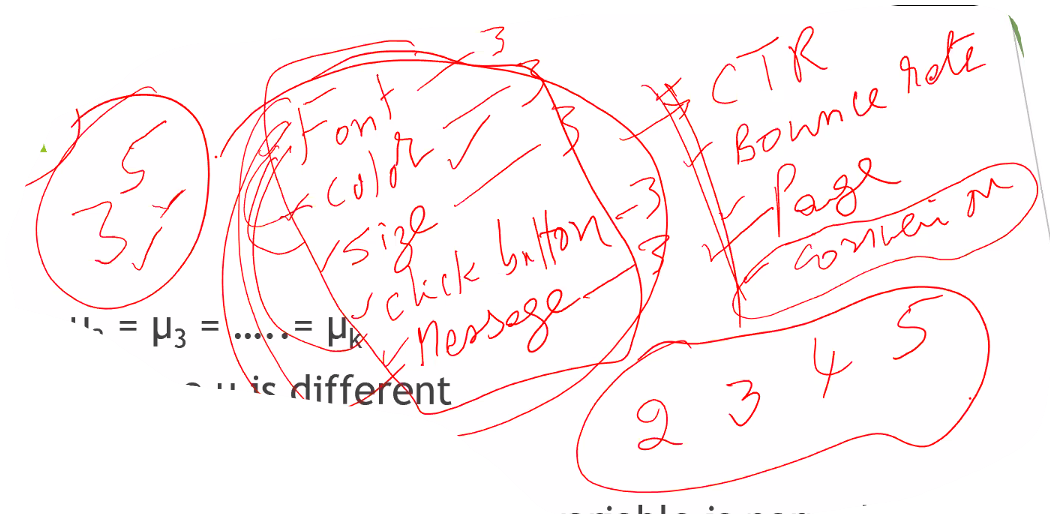 5
3
Font - 3
Color - 3
Size - 3
Click button - 3
Message - 3
CTR
Bounce rate
Page
Conversion
2 3 4 5
= μ3 = .....= μk
is different
variable is non